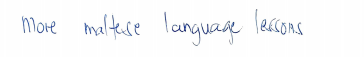 More maltese language lessons